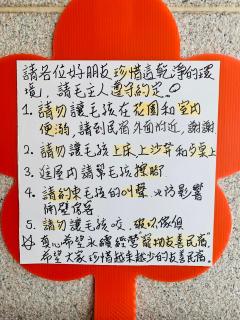 請各位好朋友珍惜這乾淨的環
境，請毛主人遵守約定。
1. 請勿讓毛孩在花園和室內
便溺，請到民宿外面附近，謝謝
2. 請勿讓毛孩上床、上沙發和桌上
3. 進屋內請幫毛孩擦腳
4. 請約束毛孩的叫聲，以防影響
隔壁
5. 請勿讓毛孩咬，破坏傢俱
☆ 真心希望永續經營"寵物友善民宿"
希望大家珍惜越來越少的友善民宿。